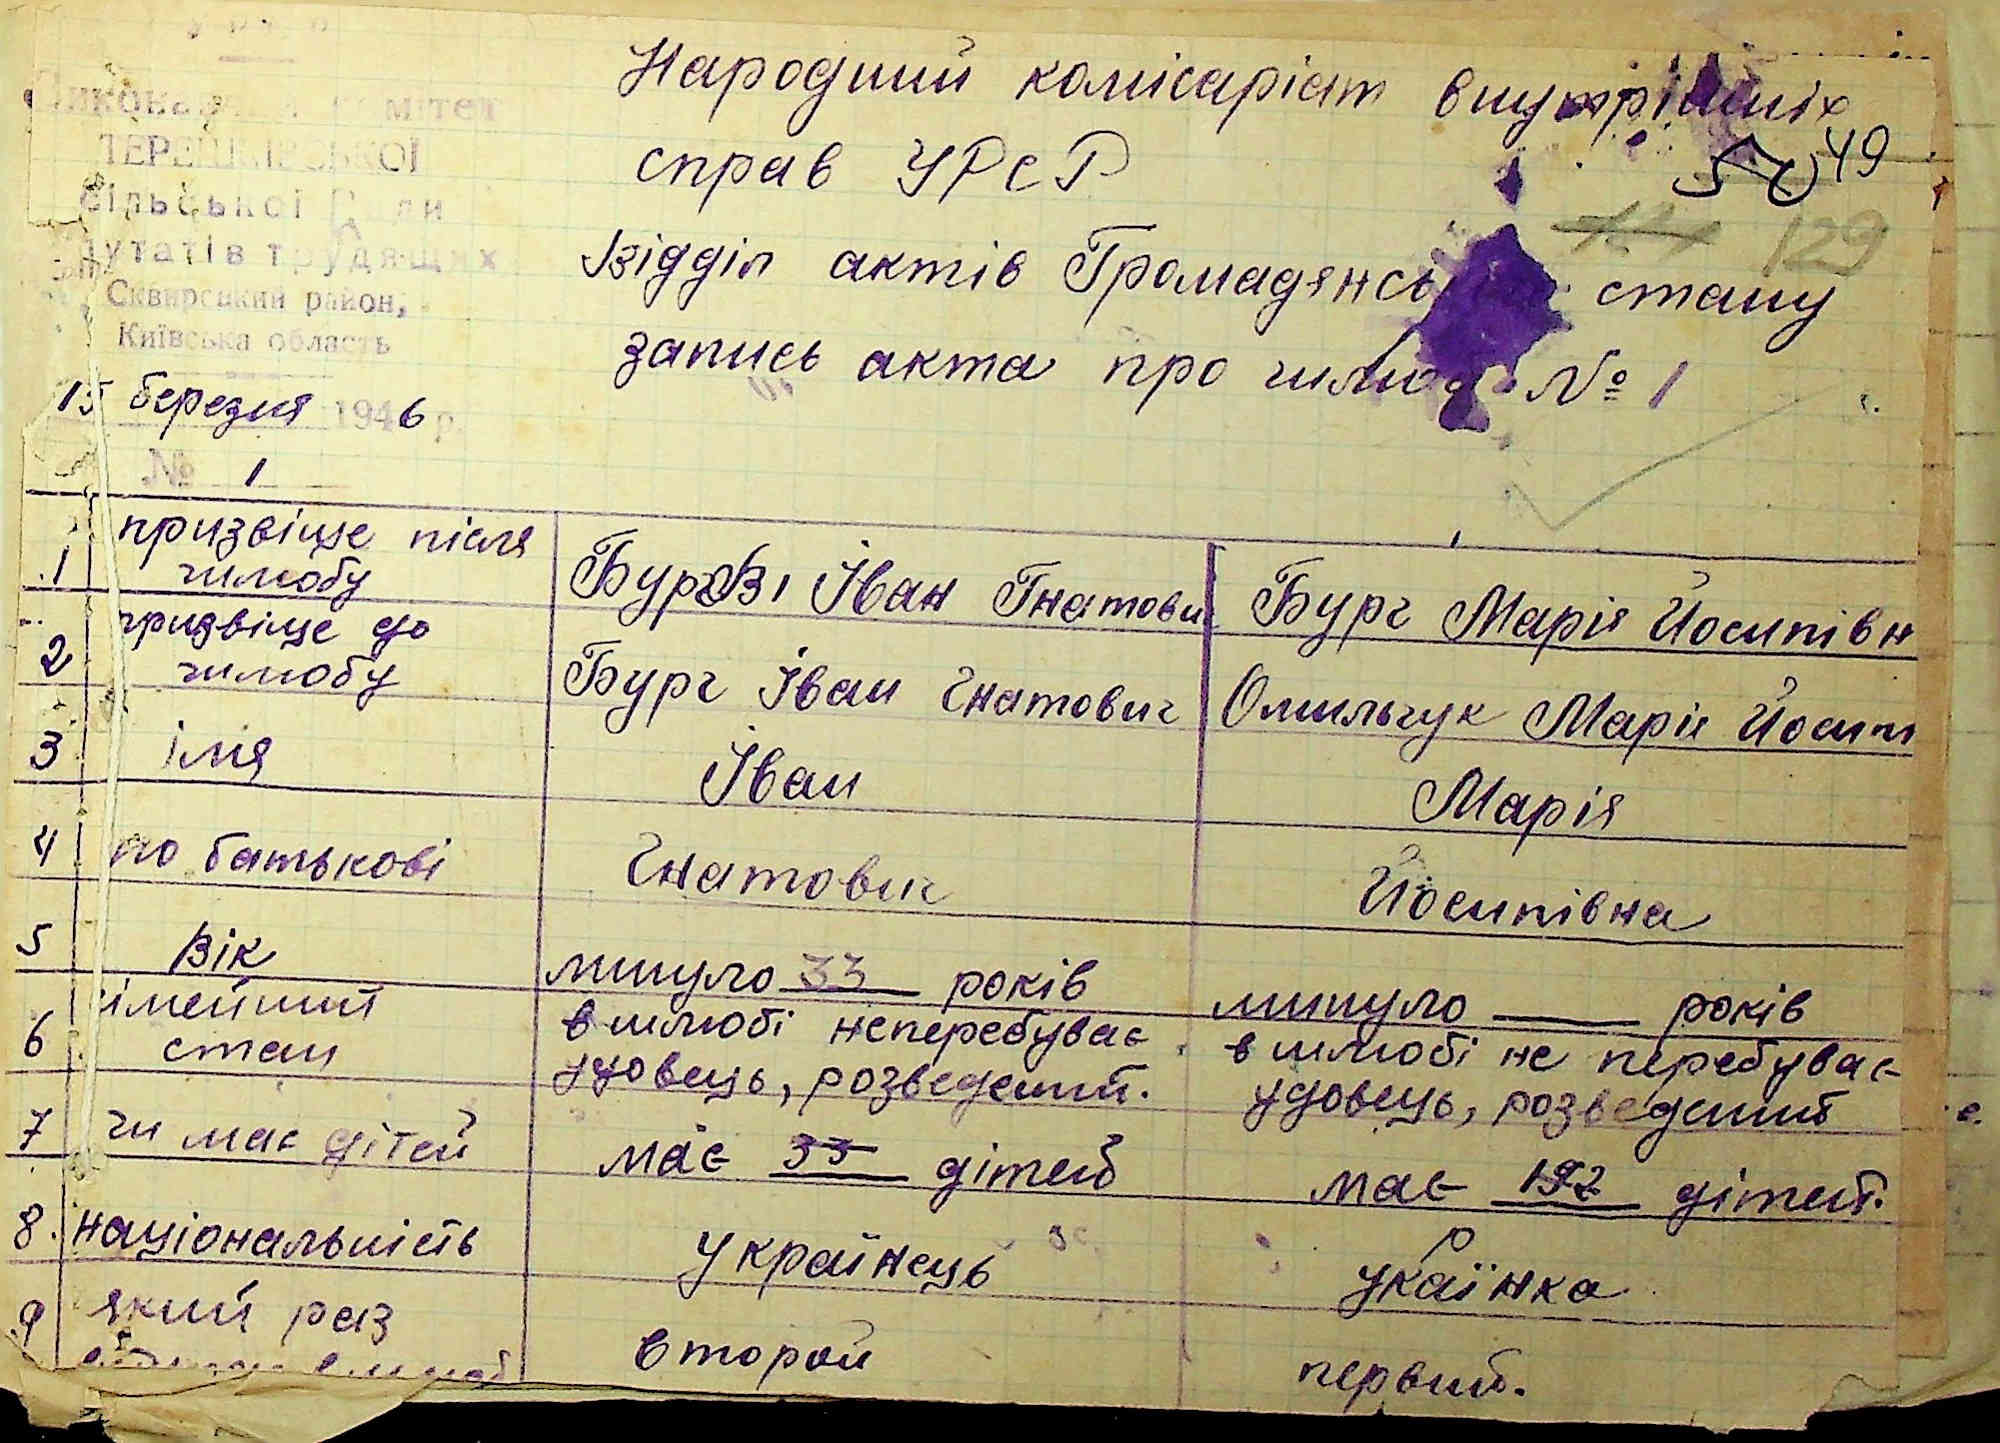 УРСР
Виконавчий комітет
ТЕРЕШКІВСЬКОЇ
сільської Ради
депутатів трудящих
Сквирський район,
Київська область
15 березня 1946 р.
№ 1
Народний комісаріат внутрішніх
справ УРСР
49
129
Відділ актів Громадянсь стану
запись акта про шлюб № 1
1 призвіще після шлюбу Бург Іван Гнатови Бург Марія Йосипівн
2 призвіще до шлюбу Бург Іван Гнатович Омильчук Марія Йосип
3 імя Іван Марія
4 по батькові Гнатович Йосипівна
5 Вік минуло 33 років минуло ___ років
6 сімейний стан в шлюбі неперебуває удовець, розведений. в шлюбі не перебуває удовець, розведений
7 чи має дітей має 33 дітей має 192 дітей.
8. національність Українець Украінка
9 який раз второй первий.